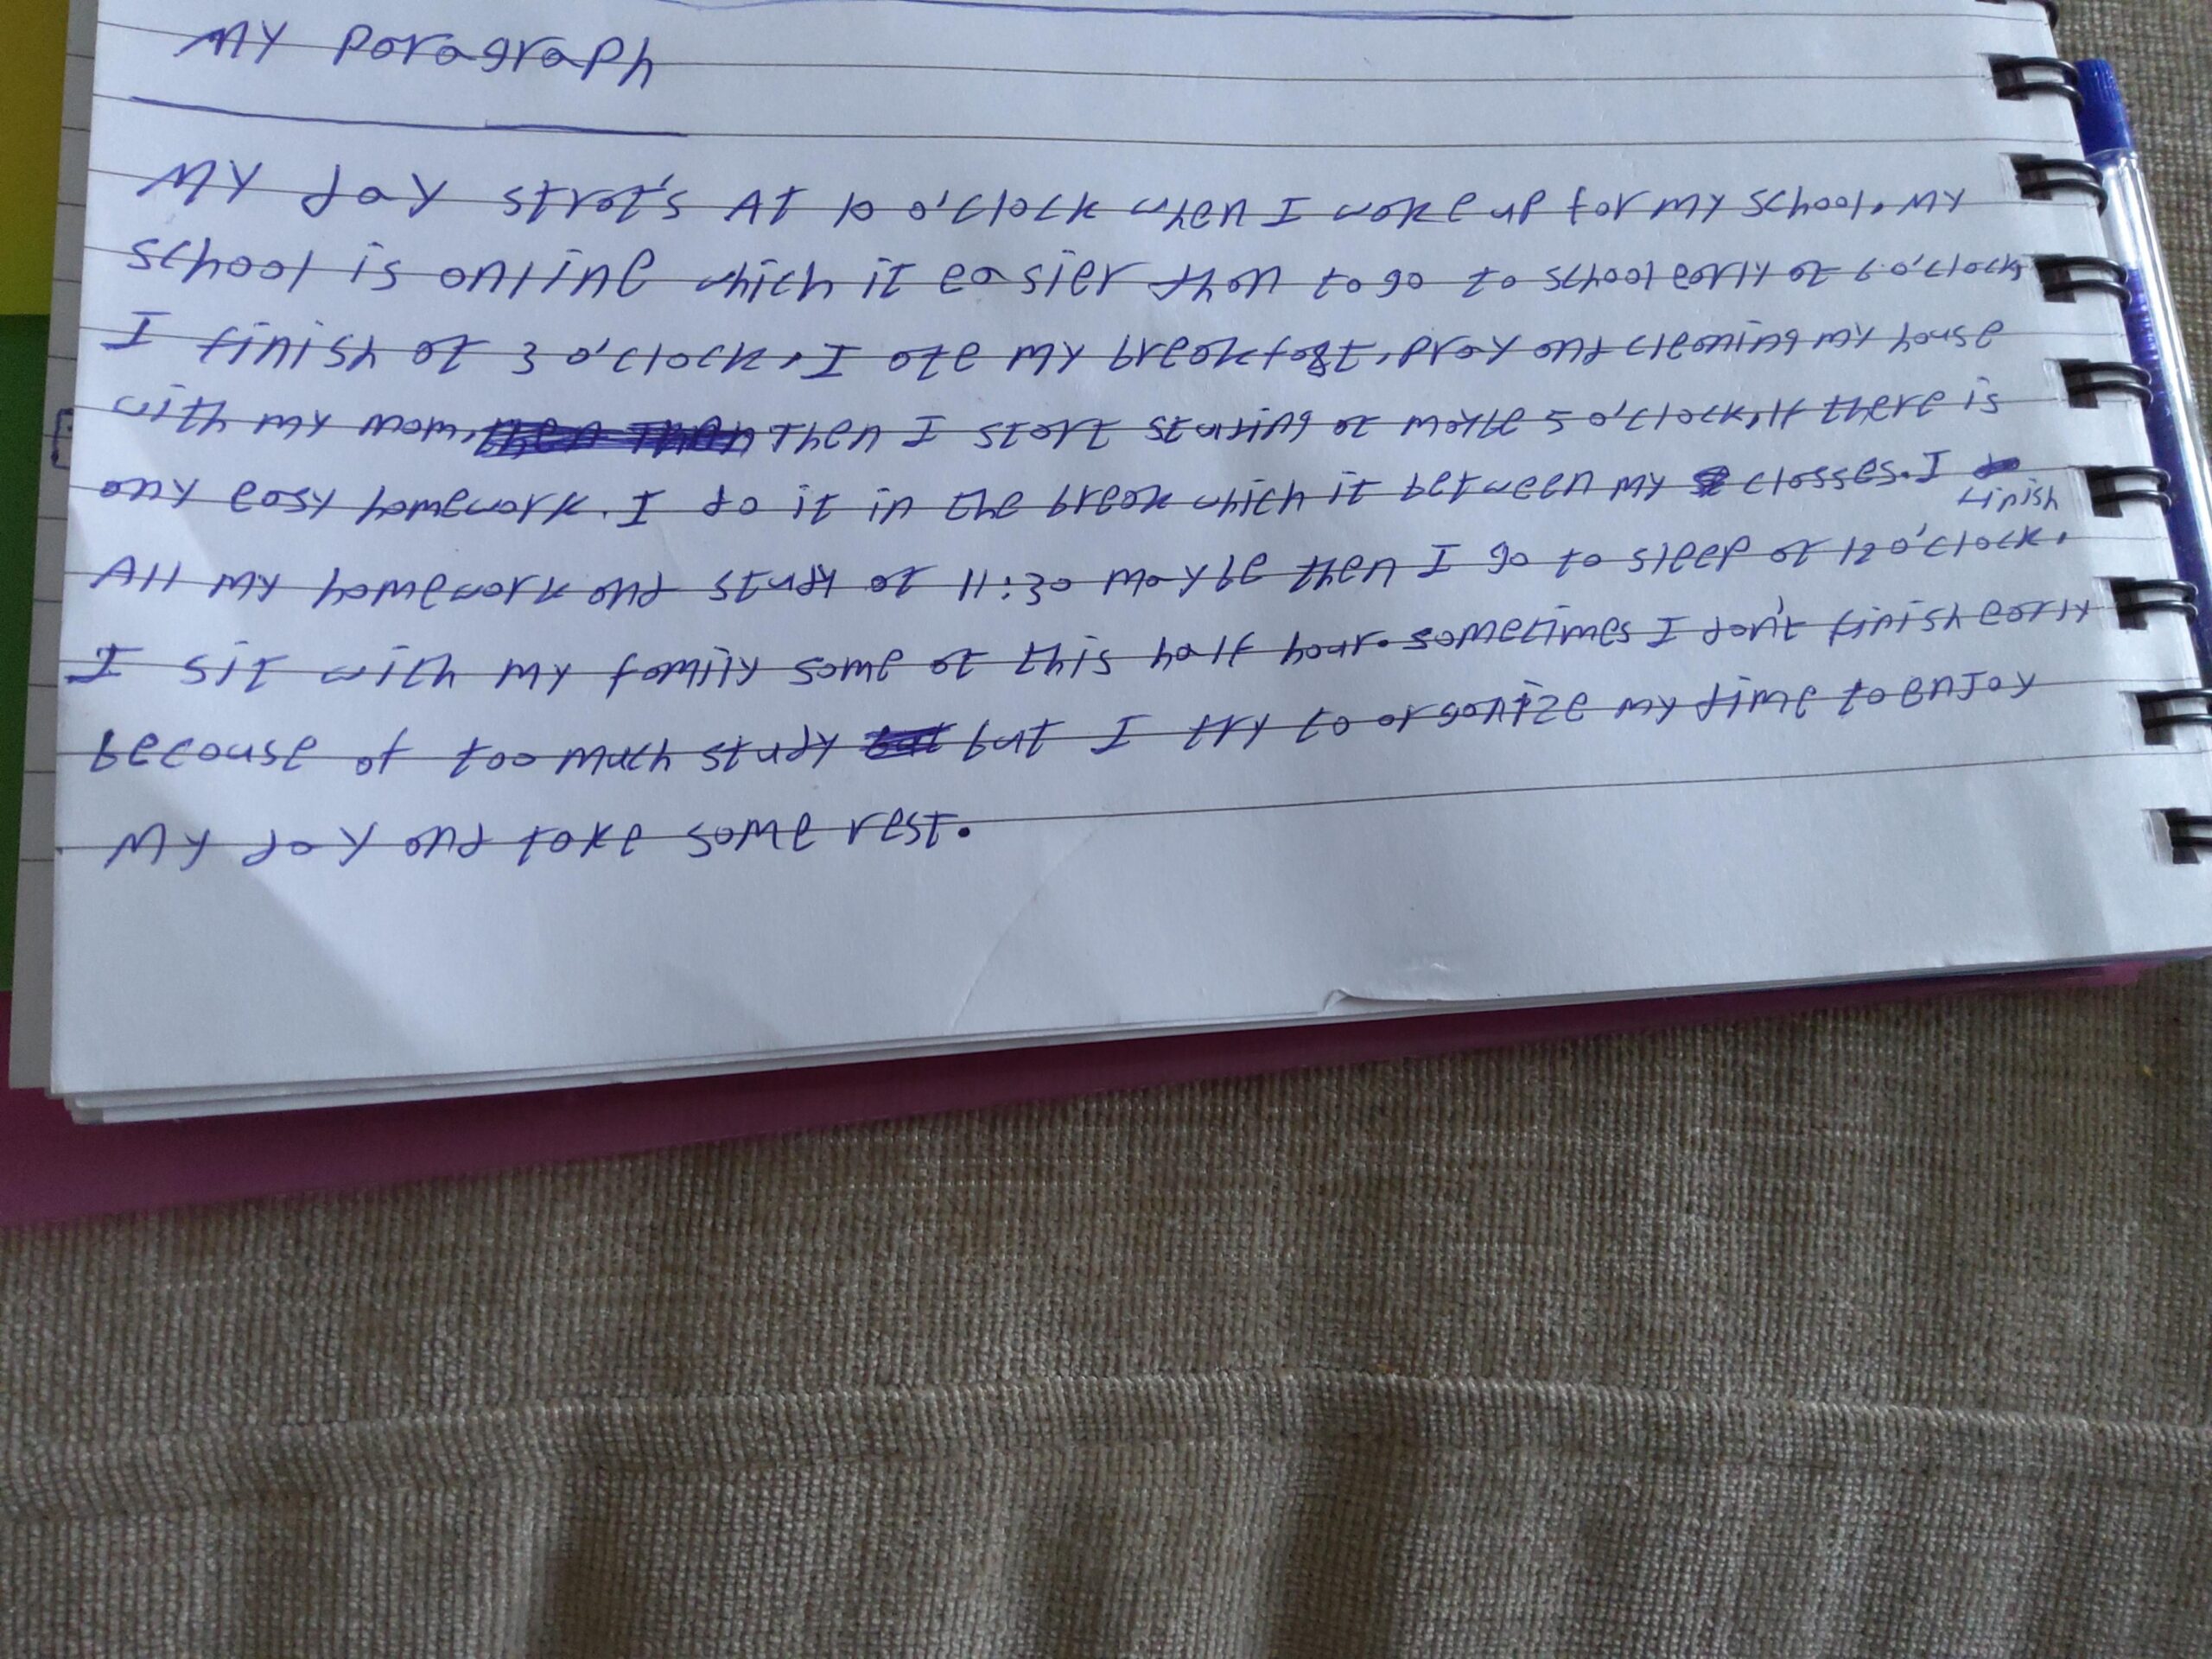 My Paragraph
My day strat's At 10 o'clock when I wake up for my school. my
school is online which it easier than to go to school early at 6 o'clock
I finish at 3 o'clock. I ate my breakfast, pray and cleaning my house
with my mom, then I start studing at maybe 5 o'clock, If there is
any easy homework. I do it in the break which it between my classes. I finish
All my homework and study at 11:30 maybe then I go to sleep at 12 o'clock.
I sit with my family some at this half hour. sometimes I don't finish early
because of too much study but I try to organize my time to enjoy
My day and take some rest.